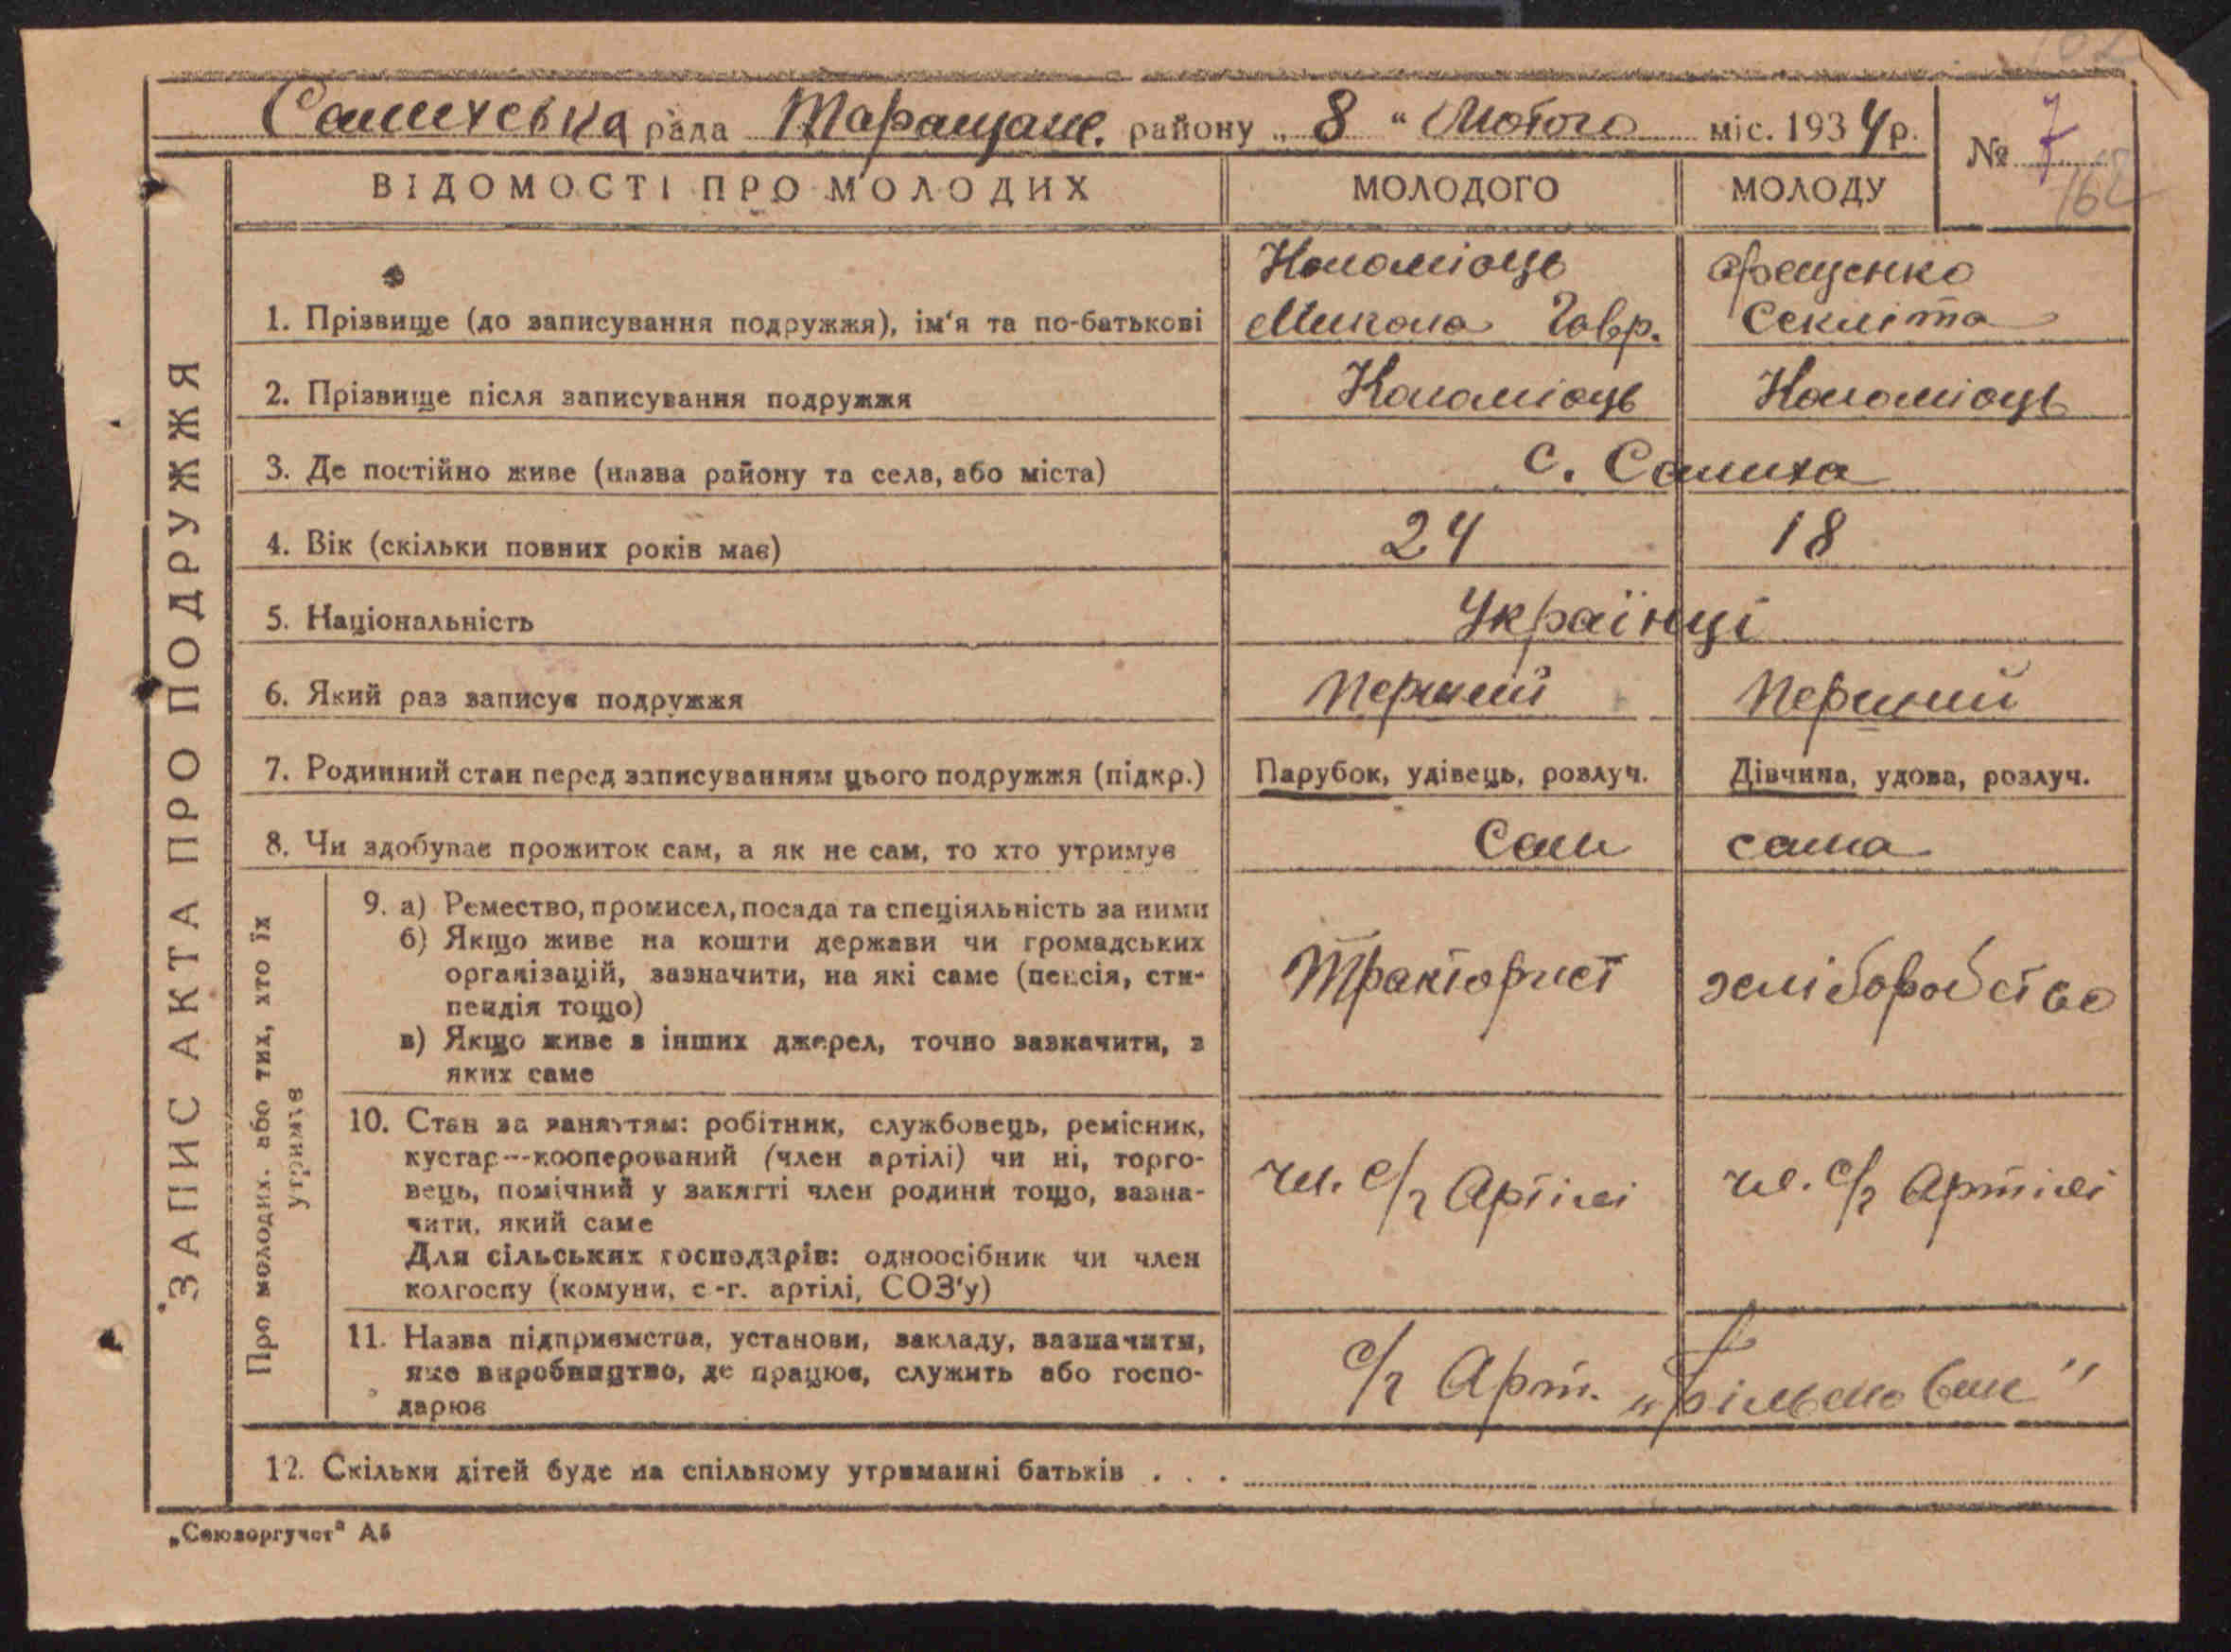 Салихська рада Таращанс. району „ 8 “ Лютого міс. 1934 р.
№ 7
162
ВІДОМОСТІ ПРО МОЛОДИХ МОЛОДОГО МОЛОДУ
ЗАПИС АКТА ПРО ПОДРУЖЖЯ
Коломієць
Микола Гавр.
Секліта
1. Прізвище (до записування подружжя), ім'я та по-батькові
2. Прізвище після записування подружжя Коломієць Коломієць
3. Де постійно живе (назва району та села, або міста) с. Салиха
4. Вік (скільки повних років має) 24 18
5. Національність Українці
6. Який раз записує подружжя Перший Перший
7. Родинний стан перед записуванням цього подружжя (підкр.) Парубок, удівець, розлуч. Дівчина, удова, розлуч.
8. Чи здобуває прожиток сам, а як не сам, то хто утримує Сам сама
Про молодих, або тих, хто їх
утримує
9. а) Ремество, промисел, посада та спеціяльність за ними
б) Якщо живе на кошти держави чи громадських
організацій, зазначити, на які саме (пенсія, сти-
пендія тощо)
в) Якщо живе з інших джерел, точно зазначити, з
яких саме
Тракторист хліборобство
10. Стан за заняттям: робітник, службовець, ремісник,
кустар—кооперований (член артілі) чи ні, торго-
вець, помічний у занятті член родини тощо, зазна-
чити, який саме
Для сільських господарів: одноосібник чи член
колгоспу (комуни, с.-г. артілі, СОЗ'у)
чл. с/г Артілі чл. с/г Артілі
11. Назва підприємства, установи, закладу, зазначити,
яке виробництво, де працює, служить або госпо-
дарює
с/г Арт.
12. Скільки дітей буде на спільному утриманні батьків . . .
„Союзоргучет“ А5